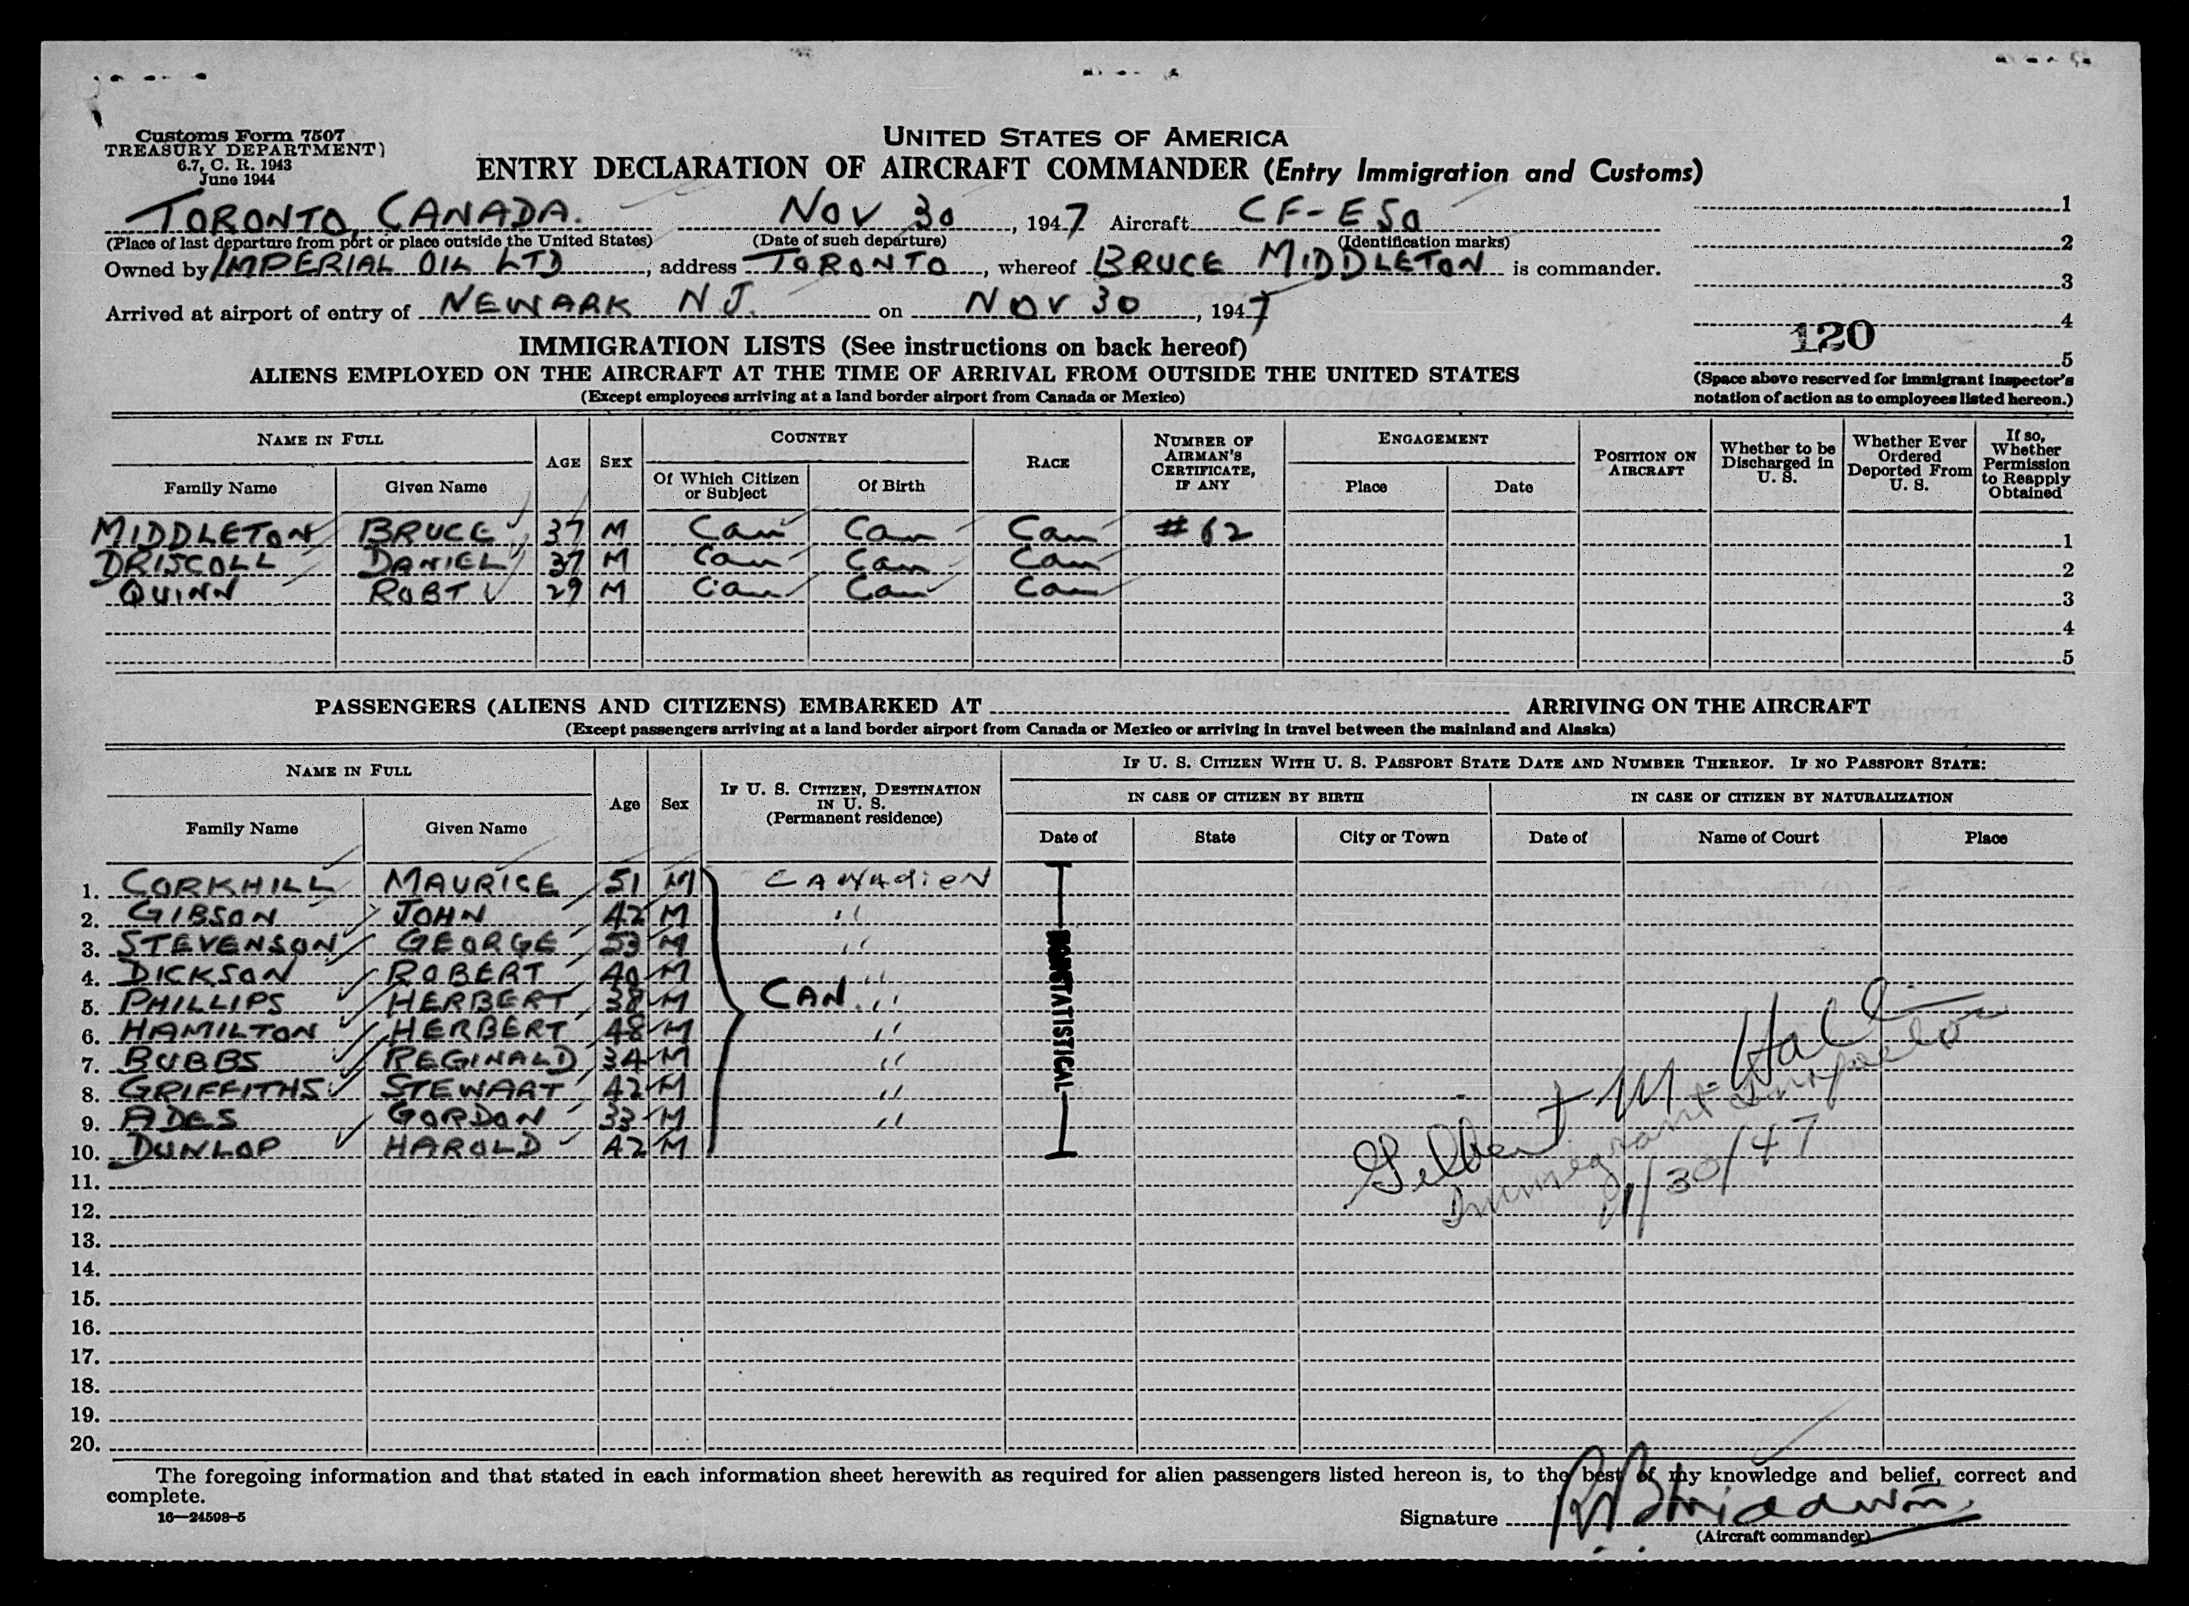 Customs Form 7507
TREASURY DEPARTMENT)
6.7, C. R. 1943
June 1944
UNITED STATES OF AMERICA
ENTRY DECLARATION OF AIRCRAFT COMMANDER (Entry Immigration and Customs)
TORONTO, CANADA. NOV 30, 1947 Aircraft CF-ESO
(Place of last departure from port or place outside the United States) (Date of such departure) (Identification marks)
Owned by IMPERIAL OIL LTD; address TORONTO, whereof BRUCE MIDDLETON is commander.
Arrived at airport of entry of NEWARK N J. on NOV 30, 1947
1
2
3
4
120
5
(Space above reserved for immigrant inspector's
notation of action as to employees listed hereon.)
IMMIGRATION LISTS (See instructions on back hereof)
ALIENS EMPLOYED ON THE AIRCRAFT AT THE TIME OF ARRIVAL FROM OUTSIDE THE UNITED STATES
(Except employees arriving at a land border airport from Canada or Mexico)
NAME IN FULL AGE SEX COUNTRY RACE NUMBER OF AIRMAN'S CERTIFICATE, IF ANY ENGAGEMENT POSITION ON AIRCRAFT Whether to be Discharged in U. S. Whether Ever Ordered Deported From U. S. If so, Whether Permission to Reapply Obtained
Family Name Given Name Of Which Citizen or Subject Of Birth Place Date
MIDDLETON BRUCE 37 M Can Can Can #62 1
DRISCOLL DANIEL 37 M Can Can Can 2
QUINN ROBT 29 M Can Can Can 3
4
5
PASSENGERS (ALIENS AND CITIZENS) EMBARKED AT ARRIVING ON THE AIRCRAFT
(Except passengers arriving at a land border airport from Canada or Mexico or arriving in travel between the mainland and Alaska)
NAME IN FULL Age Sex IF U. S. CITIZEN, DESTINATION IN U. S. (Permanent residence) IF U. S. CITIZEN WITH U. S. PASSPORT STATE DATE AND NUMBER THEREOF. IF NO PASSPORT STATE:
IN CASE OF CITIZEN BY BIRTH IN CASE OF CITIZEN BY NATURALIZATION
Family Name Given Name Date of State City or Town Date of Name of Court Place
1. CORKHILL MAURICE 51 M CANADIEN
2. GIBSON JOHN 42 M "
3. STEVENSON GEORGE 53 M "
4. DICKSON ROBERT 40 M "
5. PHILLIPS HERBERT 38 M CAN. "
6. HAMILTON HERBERT 48 M "
7. BUBBS REGINALD 34 M "
8. GRIFFITHS STEWART 42 M "
9. ADES GORDON 33 M "
10. DUNLOP HAROLD 42 M
NONSTATISTICAL
Gilbert M. Hall
Immigrant Inspector
11/30/47
11.
12.
13.
14.
15.
16.
17.
18.
19.
20.
The foregoing information and that stated in each information sheet herewith as required for alien passengers listed hereon is, to the best of my knowledge and belief, correct and
complete.
16—24598-5
Signature
(Aircraft commander)